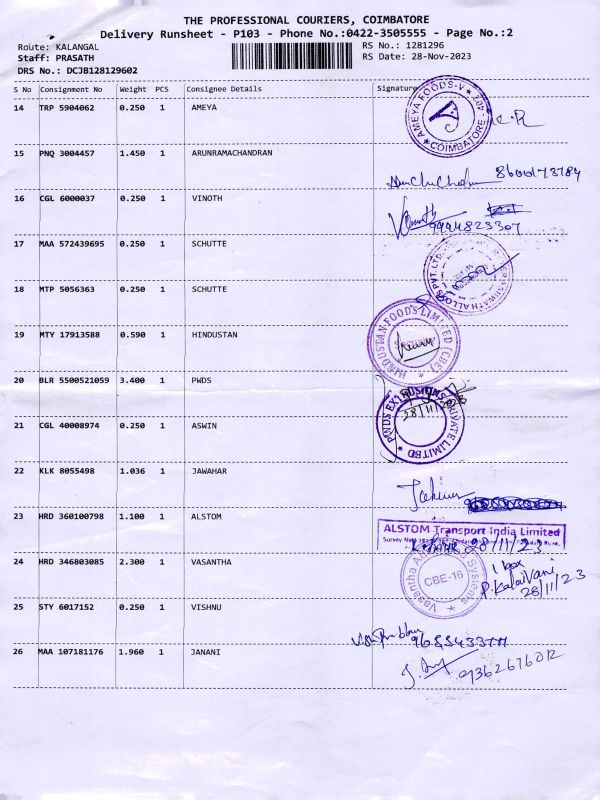 THE PROFESSIONAL COURIERS, COIMBATORE
Delivery Runsheet - P103 - Phone No.:0422-3505555 - Page No.:2
Route: KALANGAL RS No.: 1281296
Staff: PRASATH RS Date: 28-Nov-2023
DRS No.: DCJB128129602
S No Consignment No Weight PCS Consignee Details Signature
14 TRP 5904062 0.250 1 AMEYA
AMEYA FOODS COIMBATORE
15 PNQ 3004457 1.450 1 ARUNRAMACHANDRAN
16 CGL 6000037 0.250 1 VINOTH
9994823307
17 MAA 572439695 0.250 1 SCHUTTE
18 MTP 5056363 0.250 1 SCHUTTE
19 MTY 17913588 0.590 1 HINDUSTAN
HINDUSTAN FOODS LIMITED (CBE)
20 BLR 5500521059 3.400 1 PWDS
PWDS EXTRUSIONS PRIVATE LIMITED
28/11/2023
21 CGL 40008974 0.250 1 ASWIN
22 KLK 8055498 1.036 1 JAWAHAR
23 HRD 360100798 1.100 1 ALSTOM
ALSTOM Transport India Limited
28/11/23
24 HRD 346803085 2.300 1 VASANTHA
Vasantha Systems
CBE-16
1 box
P. Kalaivani
28/11/23
25 STY 6017152 0.250 1 VISHNU
26 MAA 107181176 1.960 1 JANANI